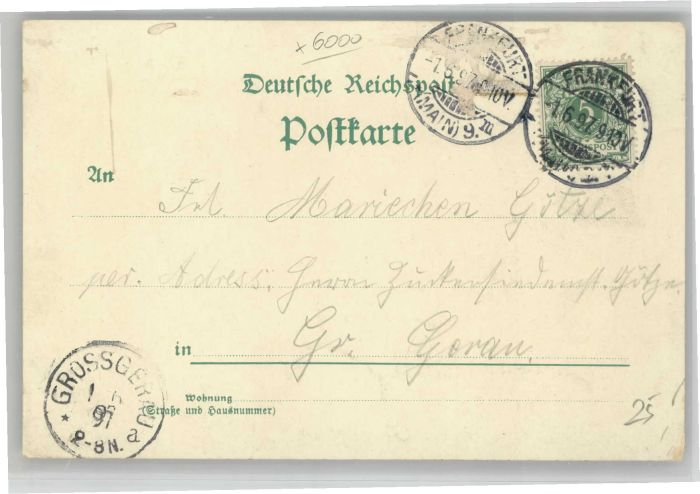 + 6000
Deutsche Reichspost
Postkarte
FRANKFURT
-1.6.97. 9-10V.
(MAIN) 9. m
FRANKFURT
6.97. 9-10V
An
Frl. Mariechen Götze
per. Adress. Herrn Götze
in Gr. Gerau.
Wohnung
(Straße und Hausnummer)
GROSSGERAU
1 6
97
2-8N. a
25,